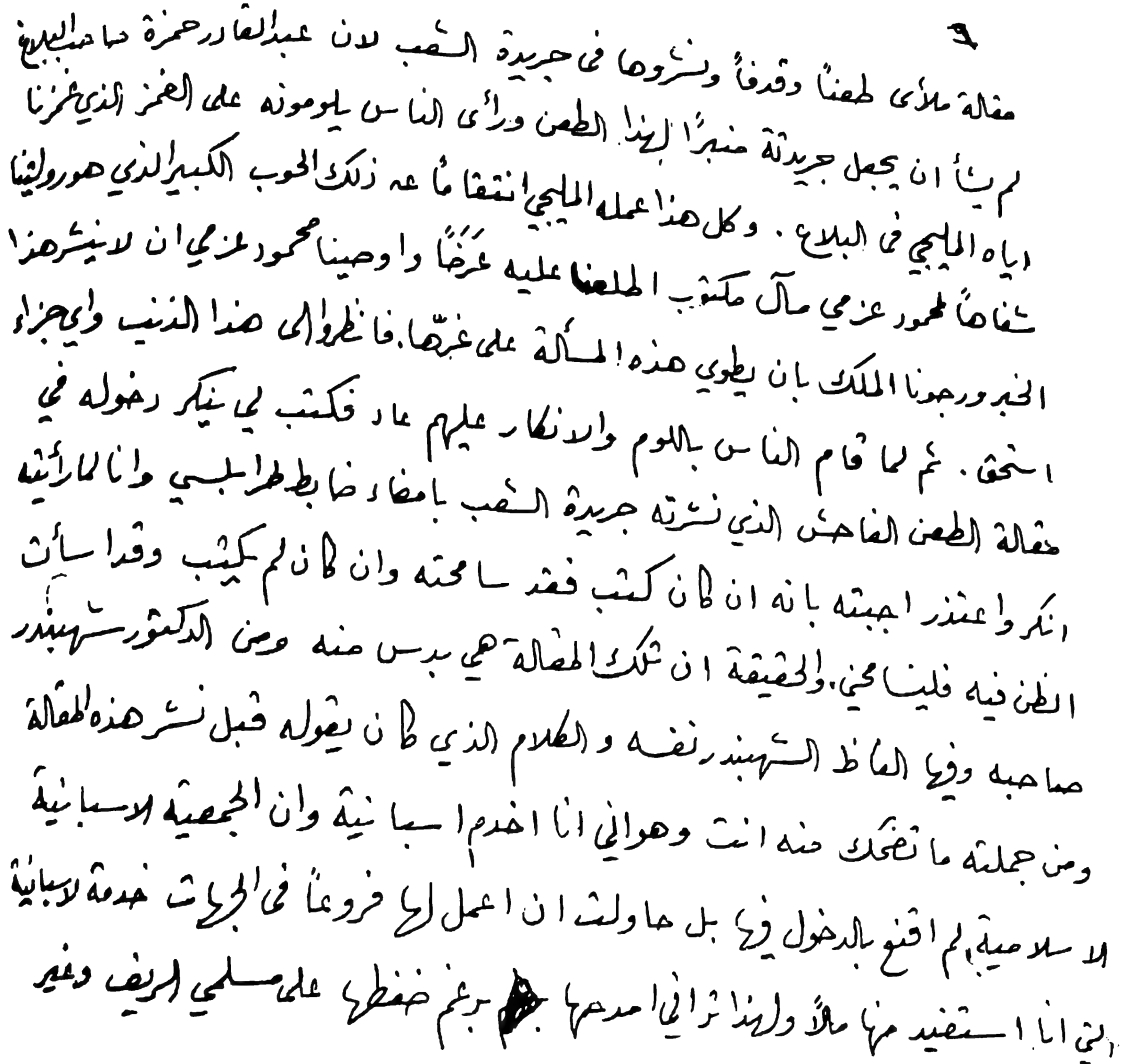 ٩
مقالة ملأى طعناً وقدفاً ونشروها فى جريدة الشعب لان عبدالقادر حمزة صاحب البلاغ
لم يشأ ان يجعل جريدتة منبرًا لهذا الطعن ورأى الناس يلومونه على الغمز الذي غمزنا
اياه المليجي فى البلاغ . وكل هذا عمله المليجي انتقامًا عن ذلك الحوب الكبير الذي هو روايتنا
شفاهاً لمحمود عزمي مآل مكتوب اطلعنا عليه عَرَضًا واوصينا محمود عزمي ان لا ينشر هذا
الخبر ورجونا الملك بان يطوي هذه المسألة على غرّها . فانظروا الى هذا الذنب واي جزاء
استحق . ثم لما قام الناس باللوم والانكار عليهم عاد فكتب لي ينكر دخوله في
مقالة الطعن الفاحش الذي نشرته جريدة الشعب بامضاء ضابط طرابلسي وانا لما رأيته
انكر واعتذر اجبته بانه ان كان كتب فقد سامحته وان كان لم يكتب وقد اسأت
الظن فيه فليسامحني . والحقيقة ان تلك المقالة هي بدس منه ومن الدكتور شهبندر
صاحبه وفيها الفاظ الشهبندر نفسه والكلام الذي كان يقوله قبل نشر هذه المقالة
ومن جملته ما تضحك منه انت وهو اني انا اخدم اسبانية وان الجمعية الاسبانية
الاسلامية لم اقنع بالدخول فيها بل حاولت ان اعمل لها فروعاً فى الجهات خدمة لاسبانية
التي انا استفيد منها مالاً ولهذا تراني امدحها برغم ضغطها على مسلمي الريف وغير